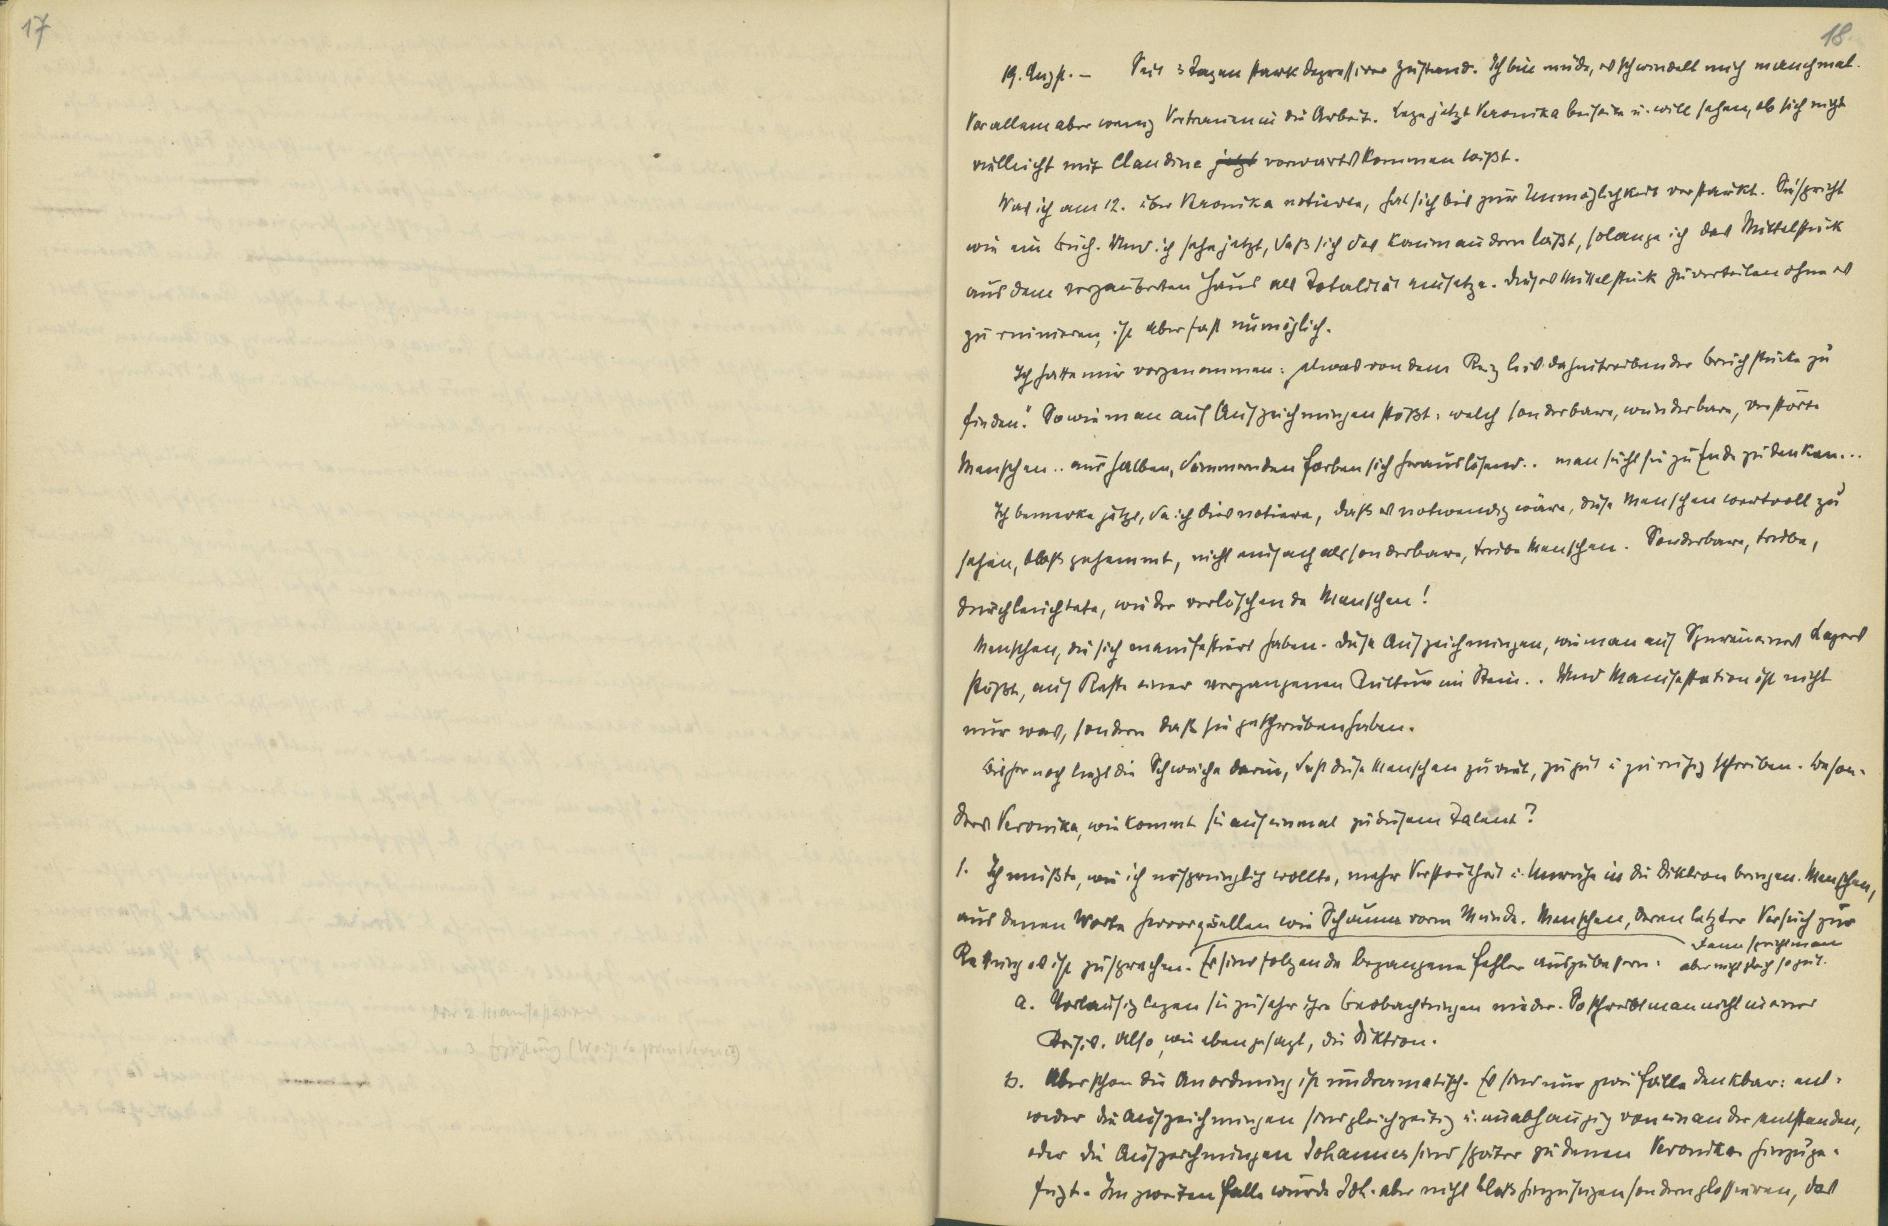 17
18
19. Augst. – Seit 3 Tagen stark depressiver Zustand. Ich bin müde, es schwindelt mich manchmal.
Vor allem aber wenig Vertrauen in die Arbeit. Lege jetzt Veronika beiseite u. will sehen, ob sich nicht
vielleicht mit Claudine jetzt vorwärtskommen läßt.
Was ich am 12. über Veronika notierte, hat sich bis zur Unmöglichkeit verstärkt. Sie spricht
wie ein Buch. Und ich sehe jetzt, daß sich das kaum ändern läßt, solange ich das Mittelstück
aus dem verzauberten Haus als Totalität ansetze. Dieses Mittelstück zu verteilen ohne es
zu ruinieren, ist aber fast unmöglich.
Ich hatte mir vorgenommen: „etwas von dem Reiz leis dahintreibender Bruchstücke zu
finden." So wie man auf Aufzeichnungen stößt: welch sonderbare, wunderbare, verstörte
Menschen.. aus halben, dämmernden Farben sich herauslösend.. man sucht sie zu Ende zu denken...
Ich bemerke jetzt, da ich dies notiere, daß es notwendig wäre, diese Menschen wertvoll zu
sehen, bloß gehemmt, nicht einfach als sonderbare, trübe Menschen. Sonderbare, trübe,
durchleuchtete, wieder verlöschende Menschen!
Menschen, die sich manifestiert haben. Diese Aufzeichnungen, wie man auf Spuren eines Lagers
stößt, auf Reste einer vergangenen Kultur im Stein.. Und Manifestation ist nicht
nur was, sondern daß sie geschrieben haben.
Bisher noch liegt die Schwäche darin, daß diese Menschen zu viel, zu gut u zu ruhig schreiben. Beson-
ders Veronika, wie kommt sie auf einmal zu diesem Talent?
1. Ich müßte, wie ich ursprünglich wollte, mehr Verstörtheit u. Unruhe in die Diktion bringen. Menschen,
aus denen Worte hervorquellen wie Schaum vorm Munde. Menschen, deren letzter Versuch zur
Rettung es ist zu sprechen. Es sind folgende begangene Fehler auszubessern:
Dann spricht man
aber nicht gleich so gut.
a. Vorläufig legen sie zu sehr ihre Beobachtungen nieder. So schreibt man nicht in einer
Krisis. Also, wie eben gesagt, die Diktion.
b. Aber schon die Anordnung ist undramatisch. Es sind nur zwei Fälle denkbar: ent-
weder die Aufzeichnungen sind gleichzeitig u. unabhängig von einander entstanden,
oder die Aufzeichnungen Johannes sind später zu denen Veronikas hinzuge-
fügt. Im zweiten Falle würde Joh. aber nicht bloß hinzufügen sondern glossieren, das